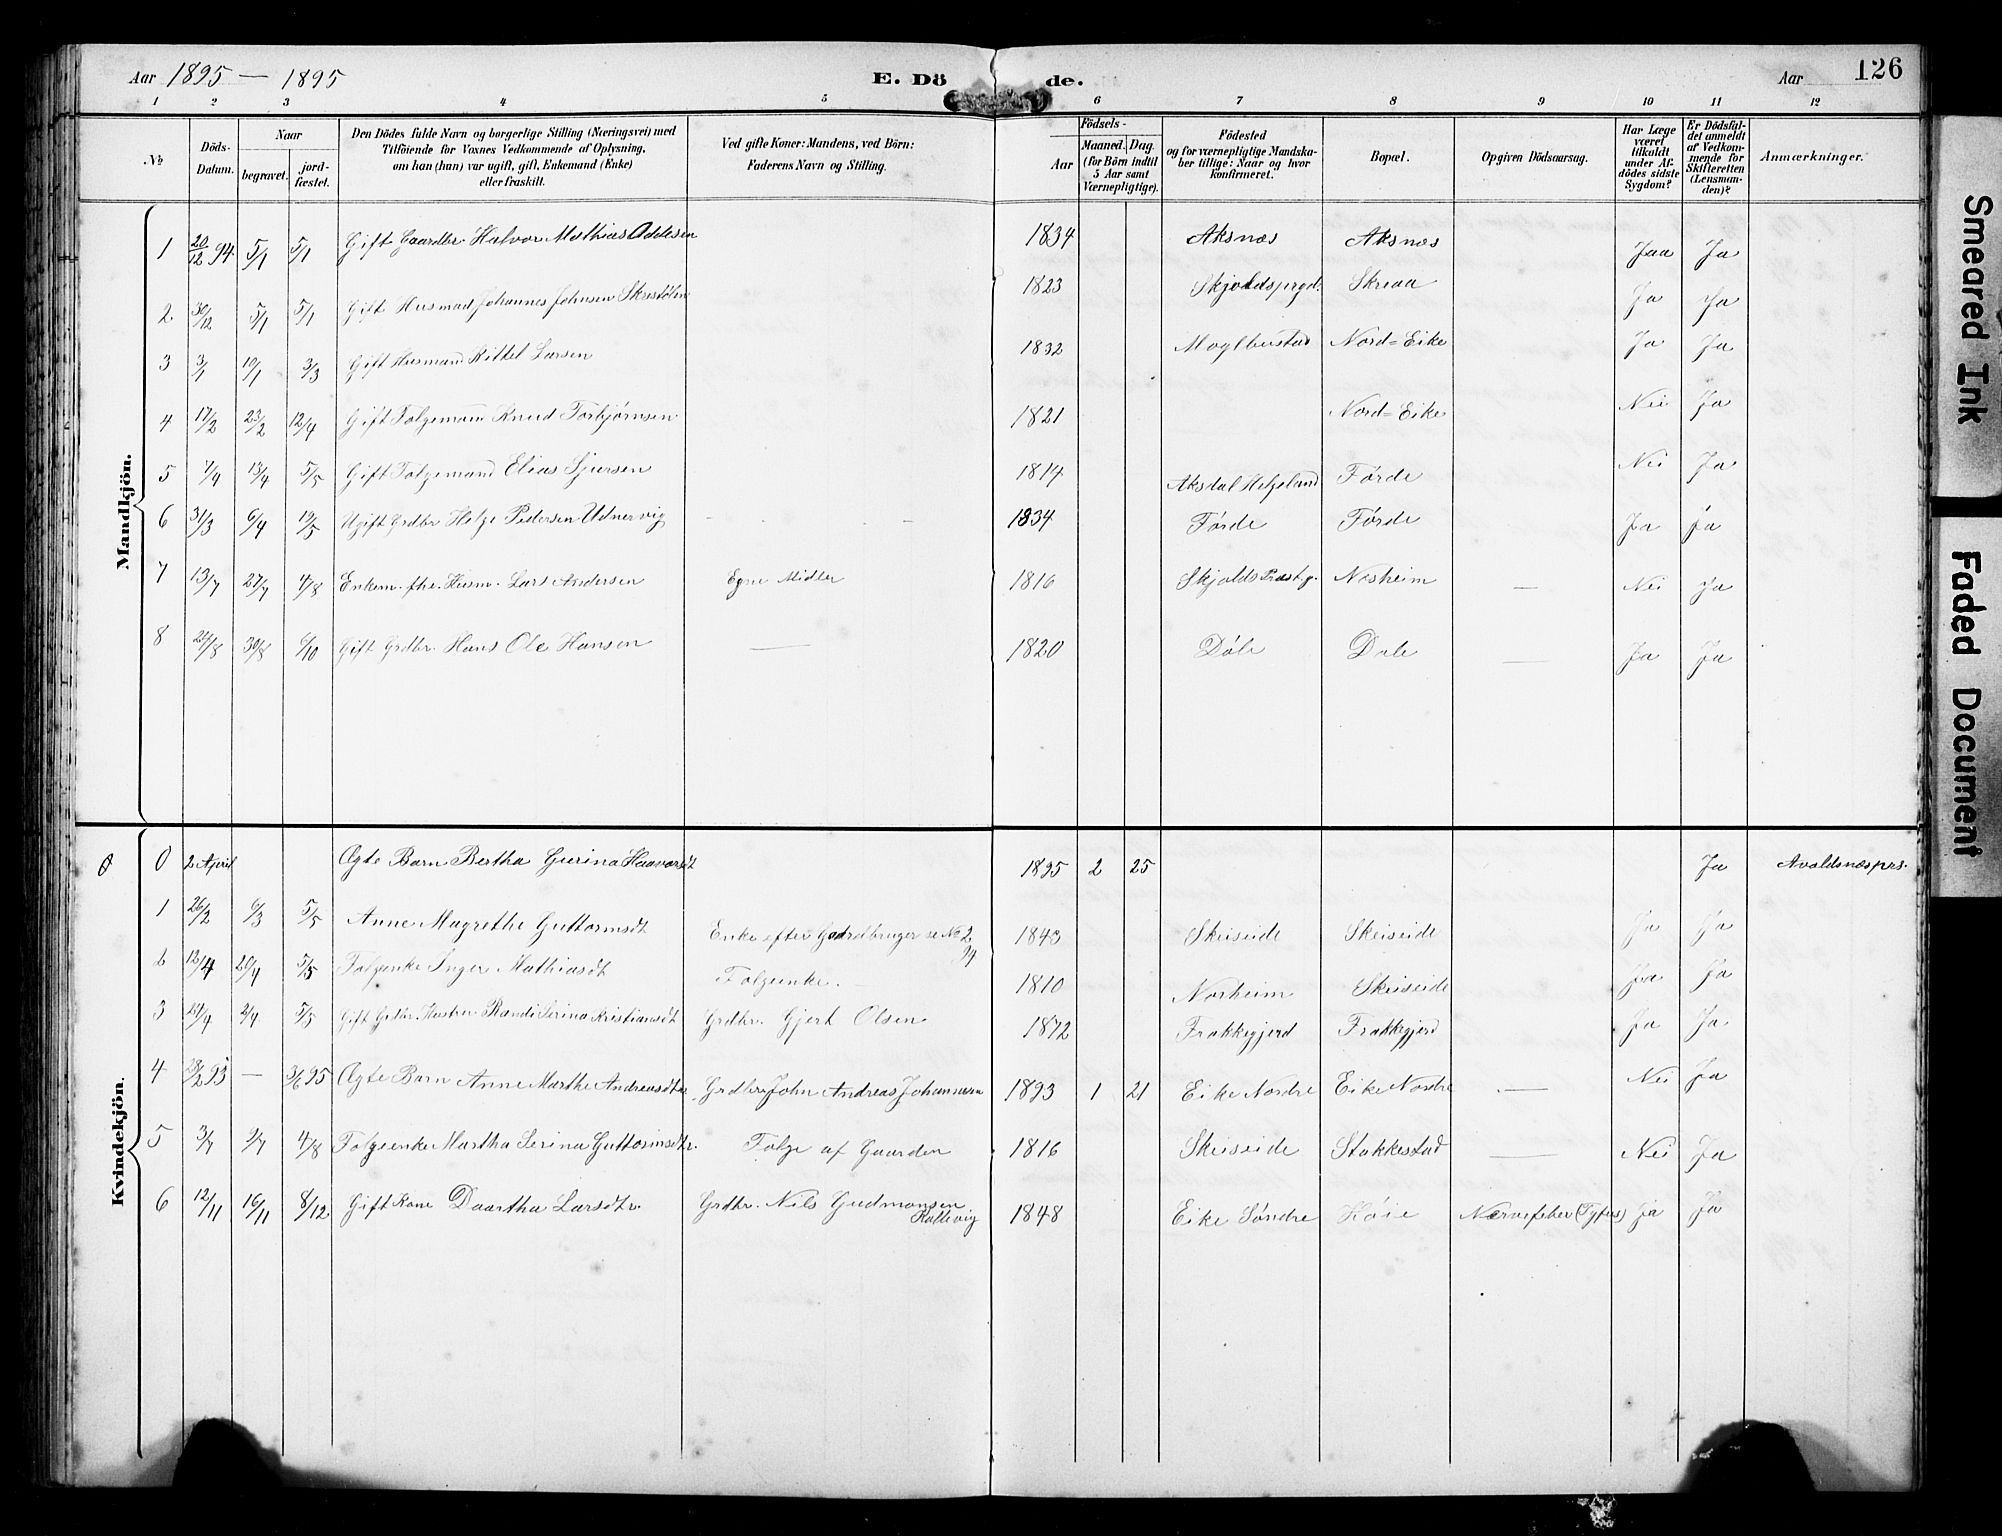 Aar 1895 — 1895
E. Dö de.
Aar
126
1 2 3 4 5 6 7 8 9 10 11 12
No
Döds-Datum.
Naar
begravet.
jord-fæstet.
Den Dödes fulde Navn og borgerlige Stilling (Næringsvei) med
Tilföiende for Voxnes Vedkommende af Oplysning,
om han (hun) var ugift, gift, Enkemand (Enke)
eller fraskilt.
Ved gifte Koner: Mandens, ved Börn:
Faderens Navn og Stilling.
Födsels-
Aar
Maaned. Dag.
(for Börn indtil
5 Aar samt
Værnepligtige).
Födested
og for værnepligtige Mandska-
ber tillige: Naar og hvor
konfirmeret.
Bopæl.
Opgiven Dödsaarsag.
Har Læge
været
tilkaldt
under Af-
dödes sidste
Sygdom?
Er Dödsfal-
det anmeldt
af Vedkom-
mende for
Skifteretten
(Lensman-
den)?
Anmærkninger.
Mandkjön.
1 20/12 94. 5/1 5/1 Gift Gaardbr. Halvor Mathias Oddesen 1834 Aksnæs Aksnæs Jaa Ja
2 30/12 5/1 5/1 Gift Husmad Johannes Johnsen 1823 Skjoldsprgd. Skreaa Ja Ja
3 3/1 10/1 3/3 Gift Husmand Kittel Larsen 1832 Nord=Eike Ja Ja
4 17/2 23/2 12/4 Gift Folgemann Knud Torbjørnsen 1821 Nord=Eike Nei Ja
5 7/4 13/4 5/5 Gift Folgemand Elias Sjursen 1814 Aksdal Helgeland Førde Nei Ja
6 31/3 6/4 19/5 Ugift Grdbr Helge Pedersen Udnervig - - 1834 Førde Førde Ja Ja
7 13/7 27/7 4/8 Enkem. fhv. Husm. Lars Andersen Egne Midler 1816 Skjolds Præstg. Nesheim — Nei Ja
8 /8 30/8 6/10 Gift Grdbr. Hans Ole Hansen — 1820 Døle Dale — Ja Ja
Kvindekjön.
0 0 2 April Ægte Barn Bertha Gurina Haavarsdt 1895 2 25 Ja Avaldsnæs prs.
1 26/2 6/3 5/5 Anne Magrethe Guttormsdt Enke efter Gardbruger se No 2 94 1843 Skeiseide Skeiseide Ja Ja
2 12/4 20/4 5/5 Folgeenke Inger Mathiasdt Folgeenke. 1810 Norheim Skeiseide Ja Ja
3 /4 /4 5/5 Gift Grdbr. Hustru Randi Serina Kristiansdt Grdbr. Gjert Olsen 1872 Frakkegjerd Frakkegjerd Ja Ja
4 28/2 95 — 3/6 95 Ægte Barn Anne Marthe Andreasdtr Grdbr John Andreas Johannesen 1893 1 21 Eike Nordre Eike Nordre — Nei Ja
5 3/7 9/7 4/8 Folgeenke Martha Serina Guttormsdtr. Folge af Gaarden 1816 Skeiseide Stakkestad — Nei Ja
6 12/11 16/11 8/12 Gift Kone Daartha Larsdtr. Grdbr. Nils Gudmonsen Kallevig 1848 Eike Søndre Høie Nervefeber (Tyfus) Ja Ja
Smeared Ink
Faded Document